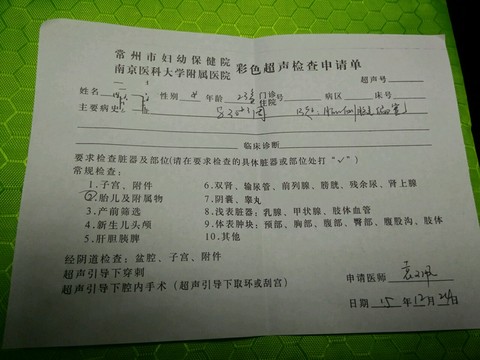 常州市妇幼保健院
南京医科大学附属医院 彩色超声检查申请单
超声号
姓名 性别 女 年龄 23岁 门诊 住院 号 病区 床号
主要病史
临床诊断
要求检查脏器及部位(请在要求检查的具体脏器或部位处打"✓")
常规检查:
1.子宫、附件 6.双肾、输尿管、前列腺、膀胱、残余尿、肾上腺
2.胎儿及附属物 7.阴囊、睾丸
3.产前筛选 8.浅表脏器:乳腺、甲状腺、肢体血管
4.新生儿头颅 9.体表肿块:颈部、胸部、腹部、臀部、腹股沟、肢体
5.肝胆胰脾 10.其他
经阴道检查:盆腔、子宫、附件
超声引导下穿刺
超声引导下腔内手术(超声引导下取环或刮宫) 申请医师
日期 15 年 12 月 24 日